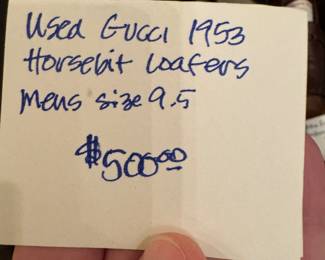 Used Gucci 1953
Horsebit Loafers
Mens size 9.5
$500.00